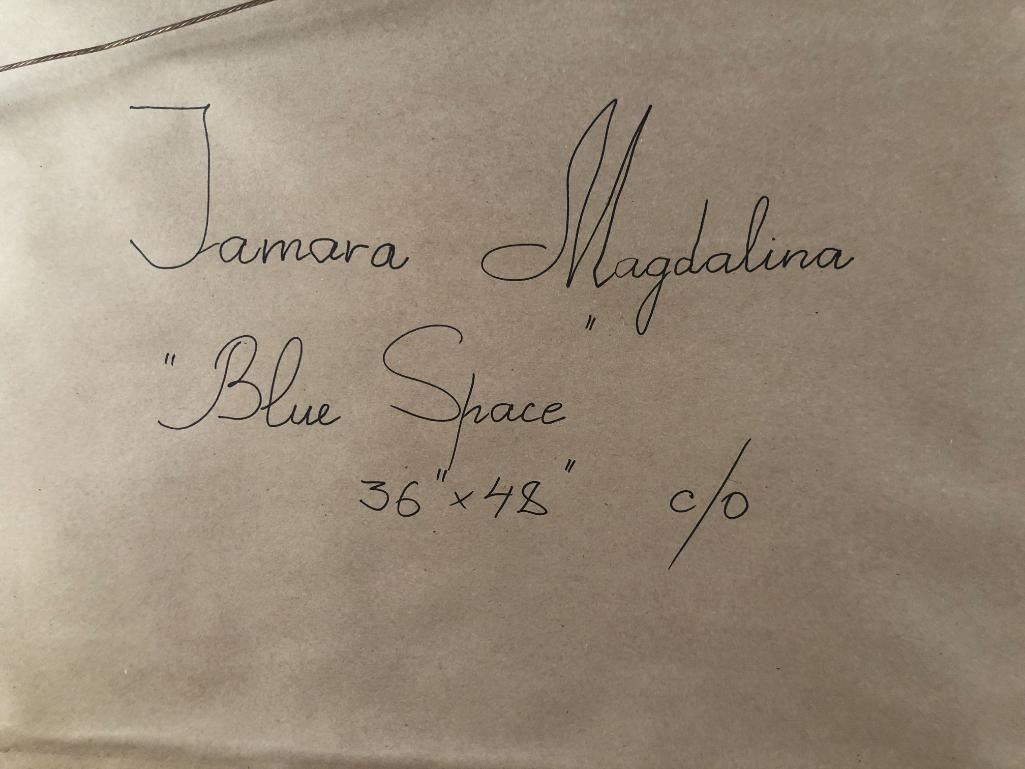 Tamara Magdalina
"Blue Space"
36" × 48" c/o